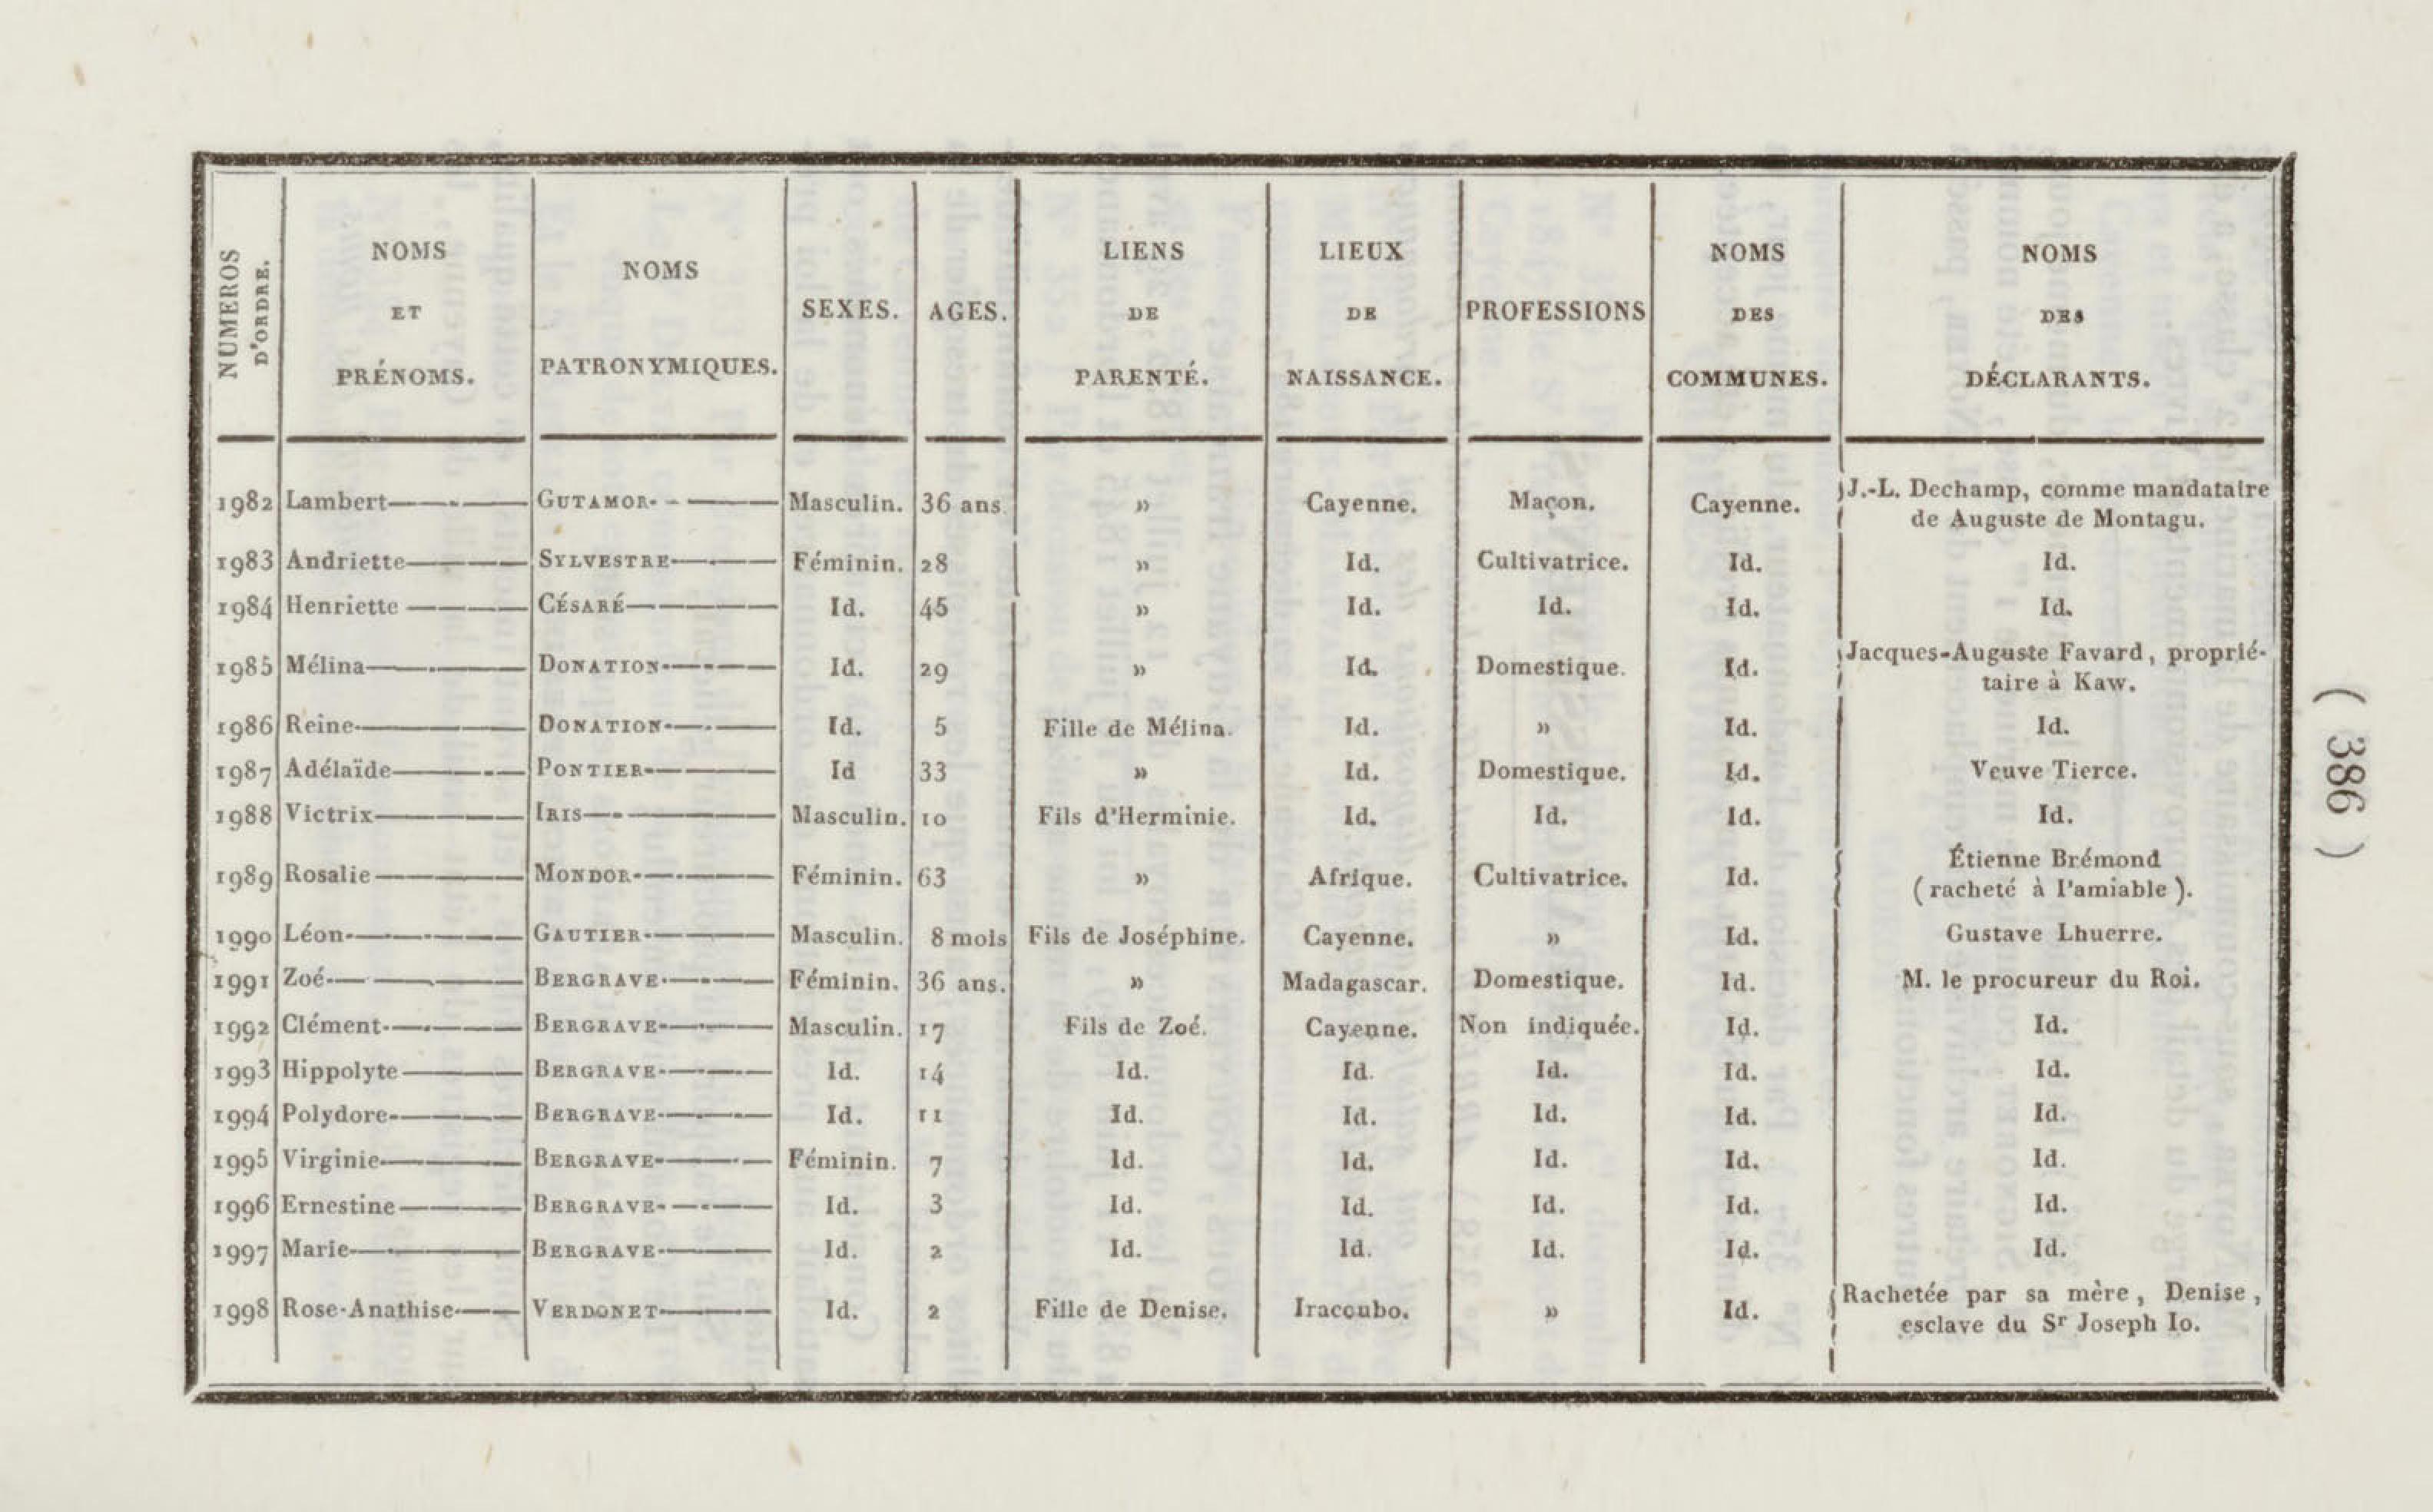 NUMEROS D'ORDRE. NOMS ET PRÉNOMS. NOMS PATRONYMIQUES. SEXES. AGES. LIENS DE PARENTÉ. LIEUX DE NAISSANCE. PROFESSIONS NOMS DES COMMUNES. NOMS DES DÉCLARANTS.
1982 Lambert GUTAMOR Masculin. 36 ans. » Cayenne. Maçon. Cayenne. J.-L. Dechamp, comme mandataire
de Auguste de Montagu.
1983 Andriette SYLVESTRE Féminin. 28 » Id. Cultivatrice. Id. Id.
1984 Henriette CÉSARÉ Id. 45 » Id. Id. Id. Id.
1985 Mélina DONATION Id. 29 » Id. Domestique. Id. Jacques-Auguste Favard, proprié-
taire à Kaw.
1986 Reine DONATION Id. 5 Fille de Mélina. Id. » Id. Id.
1987 Adélaïde PONTIER Id 33 » Id. Domestique. Id. Veuve Tierce.
1988 Victrix IRIS Masculin. 10 Fils d'Herminie. Id. Id. Id. Id.
1989 Rosalie MONDOR Féminin. 63 » Afrique. Cultivatrice. Id. Étienne Brémond
(racheté à l'amiable).
1990 Léon GAUTIER Masculin. 8 mois Fils de Joséphine. Cayenne. » Id. Gustave Lhuerre.
1991 Zoé BERGRAVE Féminin. 36 ans. » Madagascar. Domestique. Id. M. le procureur du Roi.
1992 Clément BERGRAVE Masculin. 17 Fils de Zoé. Cayenne. Non indiquée. Id. Id.
1993 Hippolyte BERGRAVE Id. 14 Id. Id. Id. Id. Id.
1994 Polydore BERGRAVE Id. 11 Id. Id. Id. Id. Id.
1995 Virginie BERGRAVE Féminin. 7 Id. Id. Id. Id. Id.
1996 Ernestine BERGRAVE Id. 3 Id. Id. Id. Id. Id.
1997 Marie BERGRAVE Id. 2 Id. Id. Id. Id. Id.
1998 Rose-Anathise VERDONET Id. 2 Fille de Denise. Iracoubo. » Id. Rachetée par sa mère, Denise,
esclave du Sr Joseph Io.
( 386 )